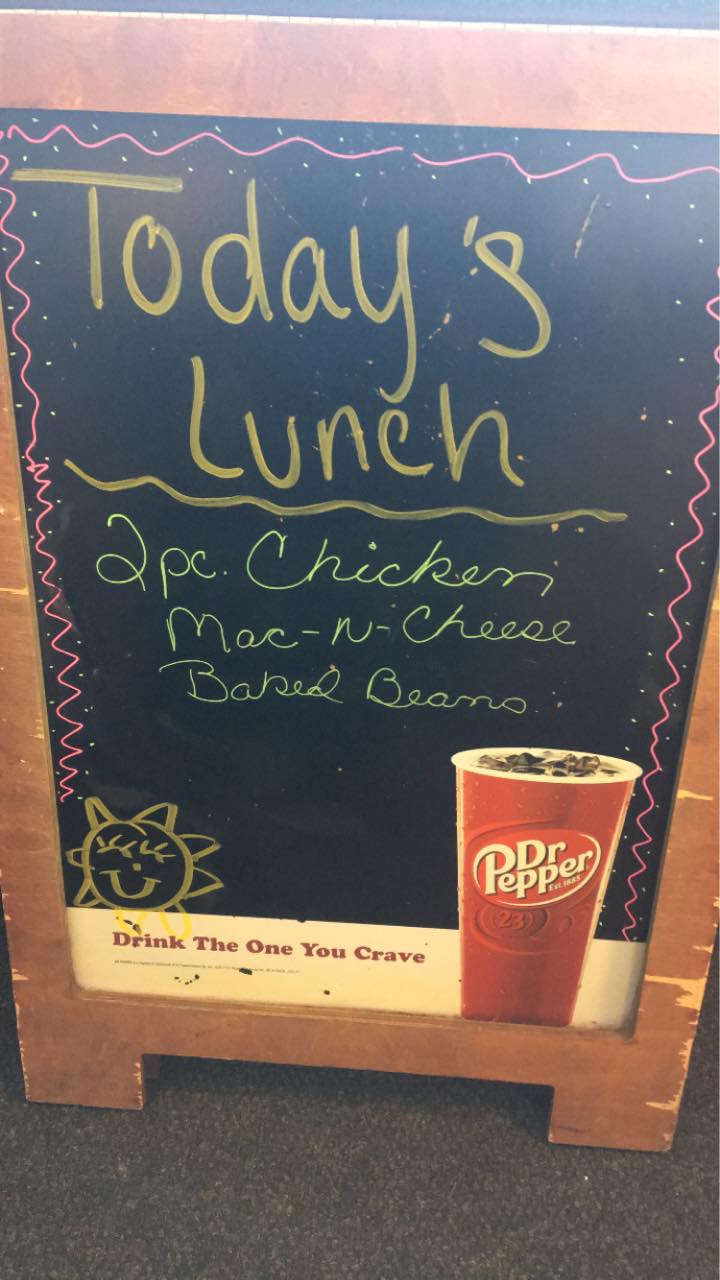 Today's
Lunch
2pc. Chicken
Mac-N-Cheese
Baked Beans
Dr
Pepper
Est. 1885
23
Drink The One You Crave